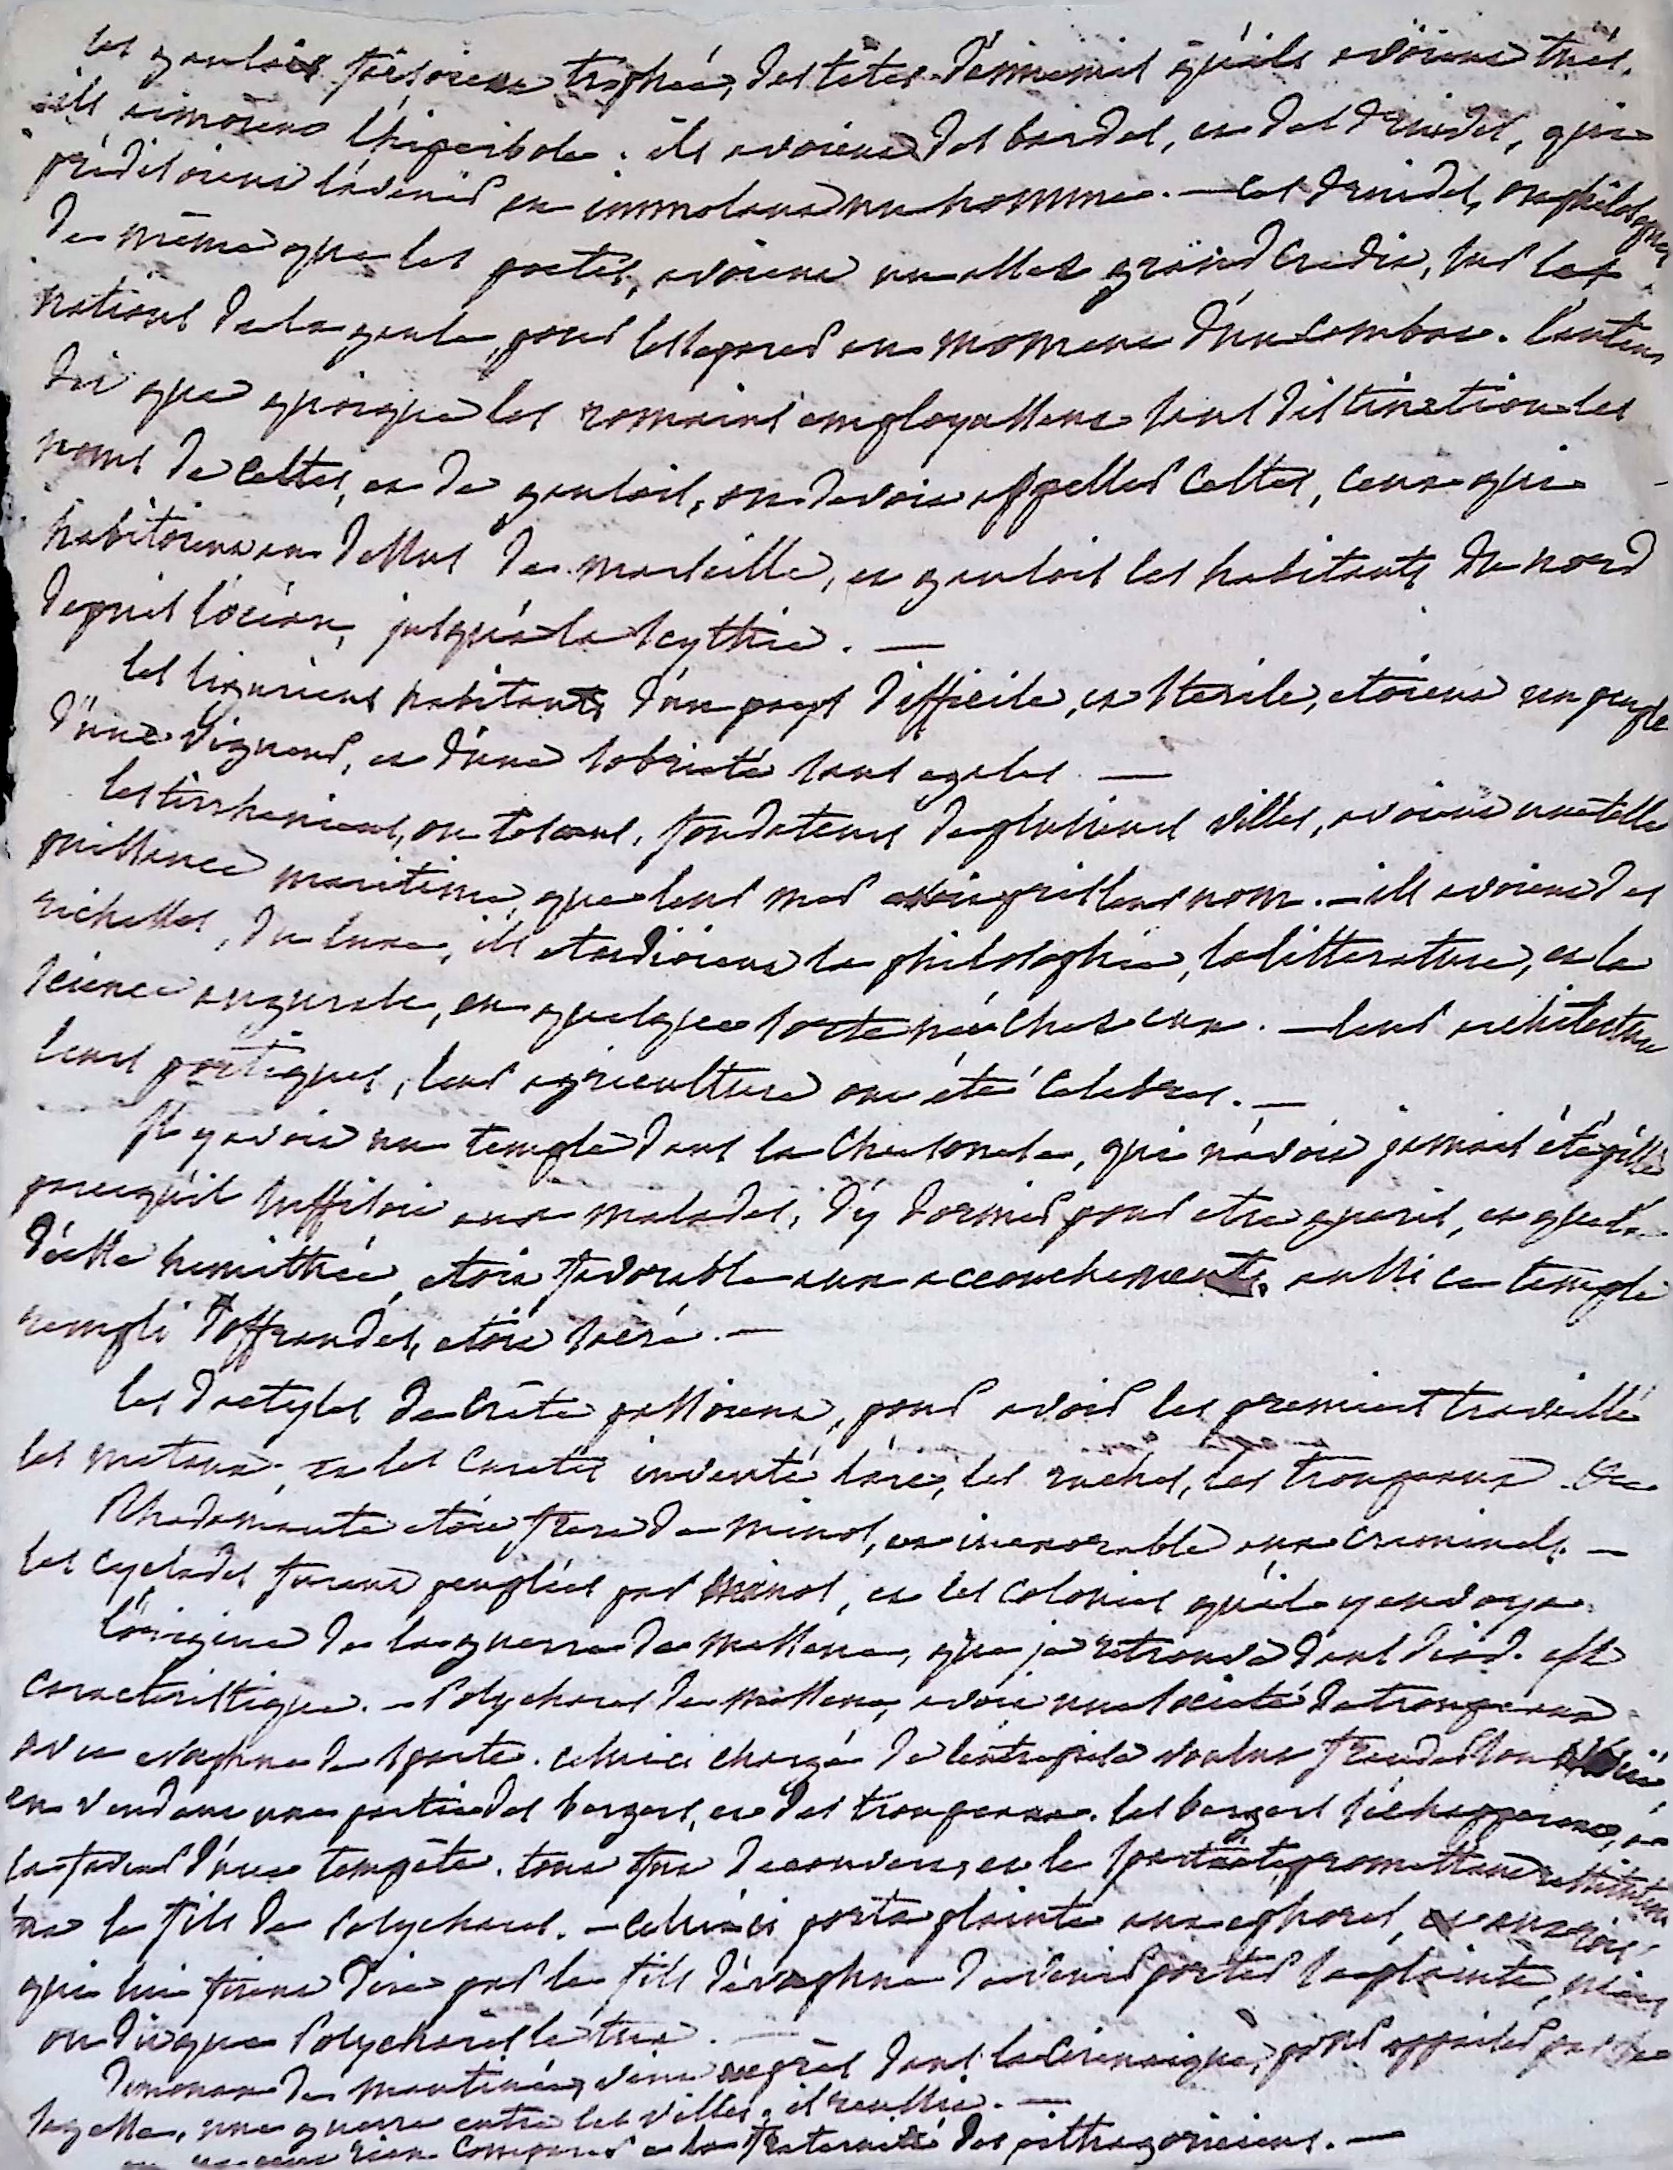 les gaulois faisoient trophée, des têtes d'ennemis qu'ils avoient tués.
ils aimoient l'hiperbole. ils avoient des bardes, et des druides, qui
prédisoient l'avenir en immolant un homme. — ces druides, ou philosophes
de même que les poetes, avoient un assez grand credit, sur les
nations de la gaule, pour les separer au moment d'un combat. l'auteur
dit que quoique les romains employassent sans distinction les
noms de celtes, et de gaulois, on devoit appeller celtes, ceux qui
habitoient au dessus de marseille, et gaulois les habitants du nord
depuis l'océan, jusqu'à la scythie. —
les liguriens habitants d'un pays difficile, et sterile, etoient un peuple
d'une vigueur, et d'une sobrieté sans egales. —
les tirrheniens, ou toscans, fondateurs de plusieurs villes, avoient une telle
puissance maritime, que leur mer avoit pris leur nom. — ils avoient des
richesses, du luxe, ils etudioient la philosophie, la litterature, et la
science augurale, en quelque sorte née chez eux. — leur architecture
leurs portiques, leur agriculture ont été celebres. —
Il y avoit un temple dans la chersonese, qui n'avoit jamais été pillé
parcequ'il suffisoit aux malades, d'y dormir pour etre gueris, et que la
déesse hemithée, etoit favorable aux accouchements. aussi ce temple
rempli d'offrandes, etoit sacré. —
les dactyles de Crête passoient, pour avoir les premiers travaillé
les metaux; et les curetes inventé l'arc, les ruches, les troupeaux &c
Rhadamante etoit frere de minos, et inexorable aux criminels. —
les cyclades furent peuplées par minos, et les colonies qu'il y envoya.
l'origine de la guerre de messene, que je retrouve dans diod. est
caracteristique. — Polychares de messene, avoit une societé de troupeaux
avec evaphne de sparte. celui ci chargé de l'entreprise voulut frauder son
en vendant une partie des bergers, et des troupeaux. les bergers s'échapperent, à
la faveur d'une tempête. tout fut decouvert, et le spartiate promettant restitution
tua le fils de Polychares. — celui ci porta plainte aux ephores, et aux rois
qui lui firent dire par le fils d'evaphne de venir porter sa plainte, mais
on dit que Polychares le tua. —
demonax de mantinée, vint exprès dans la cirenaique, pour appaiser par sa
sagesse, une guerre entre les villes. il reussit. —
rien comparer à la fraternité des pithagoriciens. —